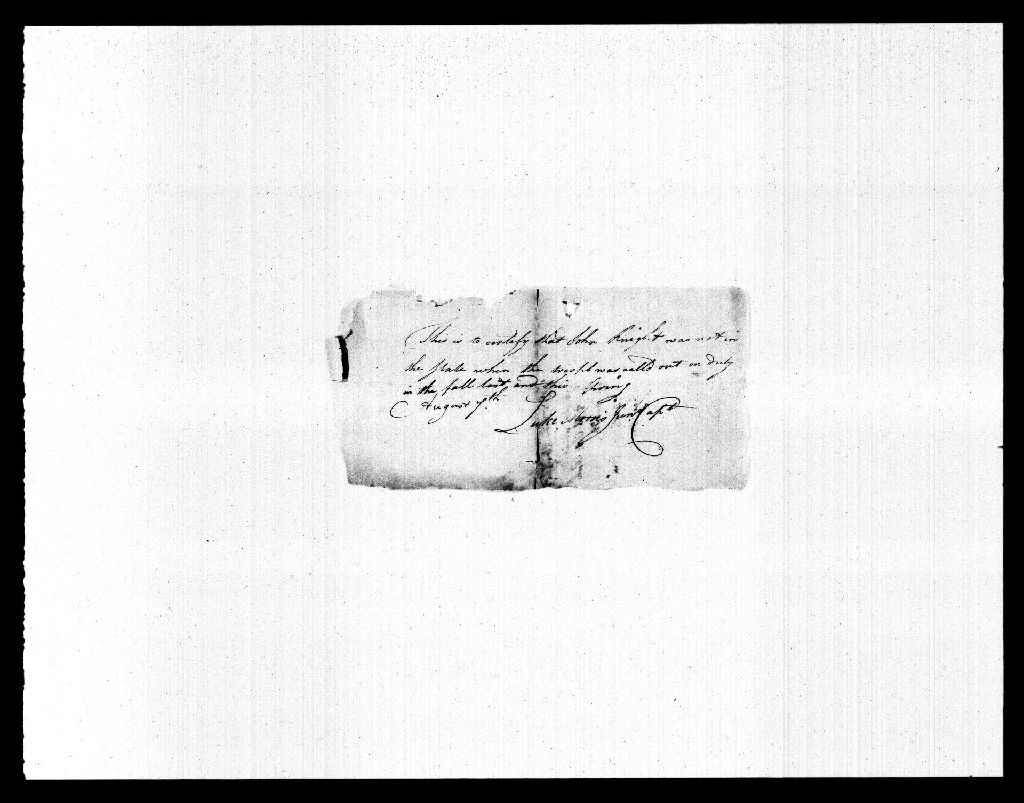 This is to certify that John Knight was not in
the State when the was calld out on duty
in the fall last and this Spring
August 7th
Luke Morris Junr Capt